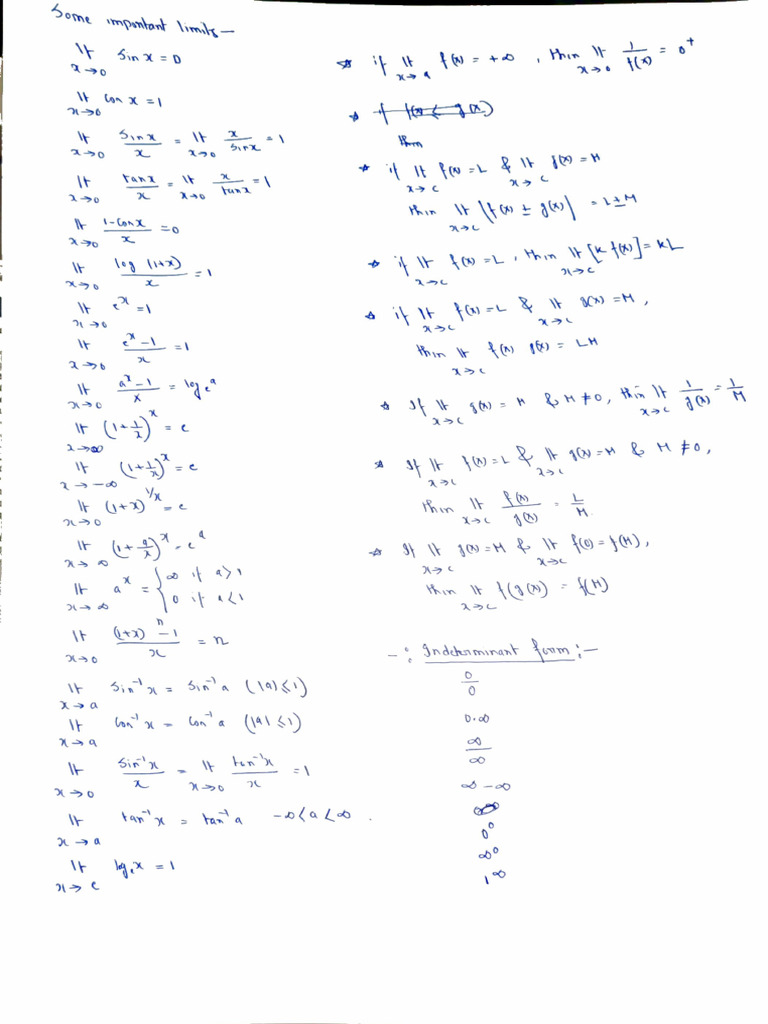 Some important limits—
lt x→0 sin x = 0
lt x→0 cos x = 1
lt x→0 sin x / x = lt x→0 x / sin x = 1
lt x→0 tan x / x = lt x→0 x / tan x = 1
lt x→0 1-cos x / x = 0
lt x→0 log (1+x) / x = 1
lt x→0 e^x = 1
lt x→0 e^x - 1 / x = 1
lt x→0 a^x - 1 / x = log_e a
lt x→∞ (1 + 1/x)^x = e
lt x→-∞ (1 + 1/x)^x = e
lt x→0 (1+x)^1/x = e
lt x→∞ (1 + a/x)^x = e^a
lt x→∞ a^x = { ∞ if a>1
0 if a<1
lt x→0 (1+x)^n - 1 / x = n
lt x→a sin^-1 x = sin^-1 a (|a| ≤ 1)
lt x→a cos^-1 x = cos^-1 a (|a| ≤ 1)
lt x→0 sin^-1 x / x = lt x→0 tan^-1 x / x = 1
lt x→a tan^-1 x = tan^-1 a -∞ < a < ∞ .
lt x→e log_e x = 1
☆ if lt x→a f(x) = +∞ , then lt x→0 1/f(x) = 0^+
☆ if f(x) < g(x)
then
☆ if lt x→c f(x) = L & lt x→c g(x) = M
then lt x→c (f(x) ± g(x)) = L ± M
☆ if lt x→c f(x) = L , then lt x→c [k f(x)] = kL
☆ if lt x→c f(x) = L & lt x→c g(x) = M ,
then lt x→c f(x) g(x) = LM
☆ If lt x→c g(x) = M & M ≠ 0, then lt x→c 1/g(x) = 1/M
☆ If lt x→c f(x) = L & lt x→c g(x) = M & M ≠ 0,
then lt x→c f(x)/g(x) = L/M.
☆ If lt x→c g(x) = M & lt x→c f(0) = f(M),
then lt x→c f(g(x)) = f(M)
-: Indeterminant form :-
0/0
0.∞
∞/∞
∞ - ∞
0^0
∞^0
1^∞